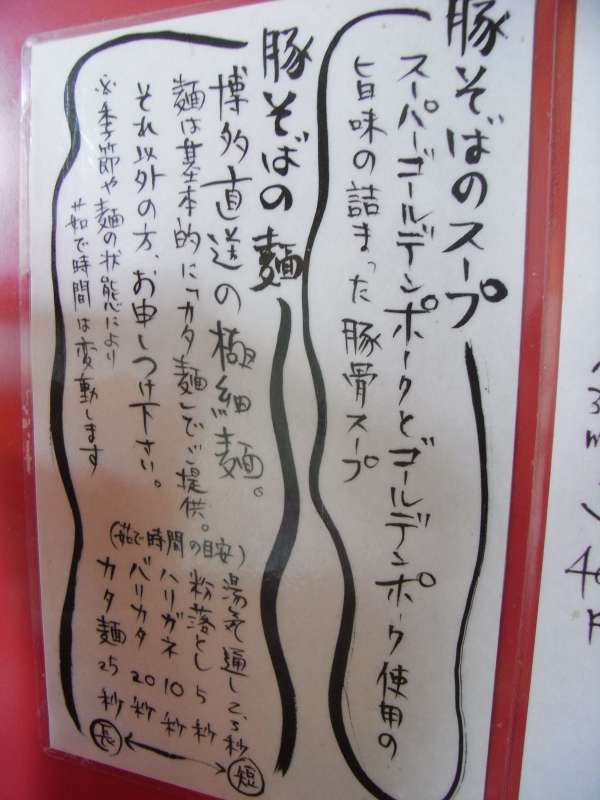 豚そばのスープ
スーパーゴールデンポークとゴールデンポーク使用の
旨味の詰まった豚骨スープ
豚そばの麺
博多直送の極細麺。
麺は基本的に「カタ麺」でご提供。
それ以外の方、お申しつけ下さい。
※季節や麺の状態により
茹で時間は変動します
(茹で時間の目安)
湯気通し 2、3秒
粉落とし 5秒
ハリガネ 10秒
バリカタ 20秒
カタ麺 25秒
長 ←→ 短